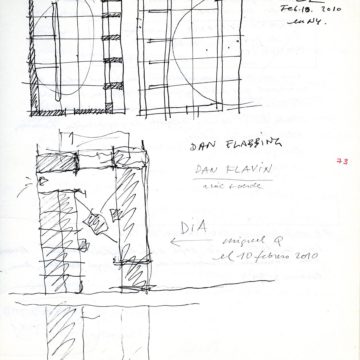 Feb.18. 2010
en NY.
DAN FLABBING
DAN FLAVIN
73
DIA
miguel Q
el 10 febrero 2010